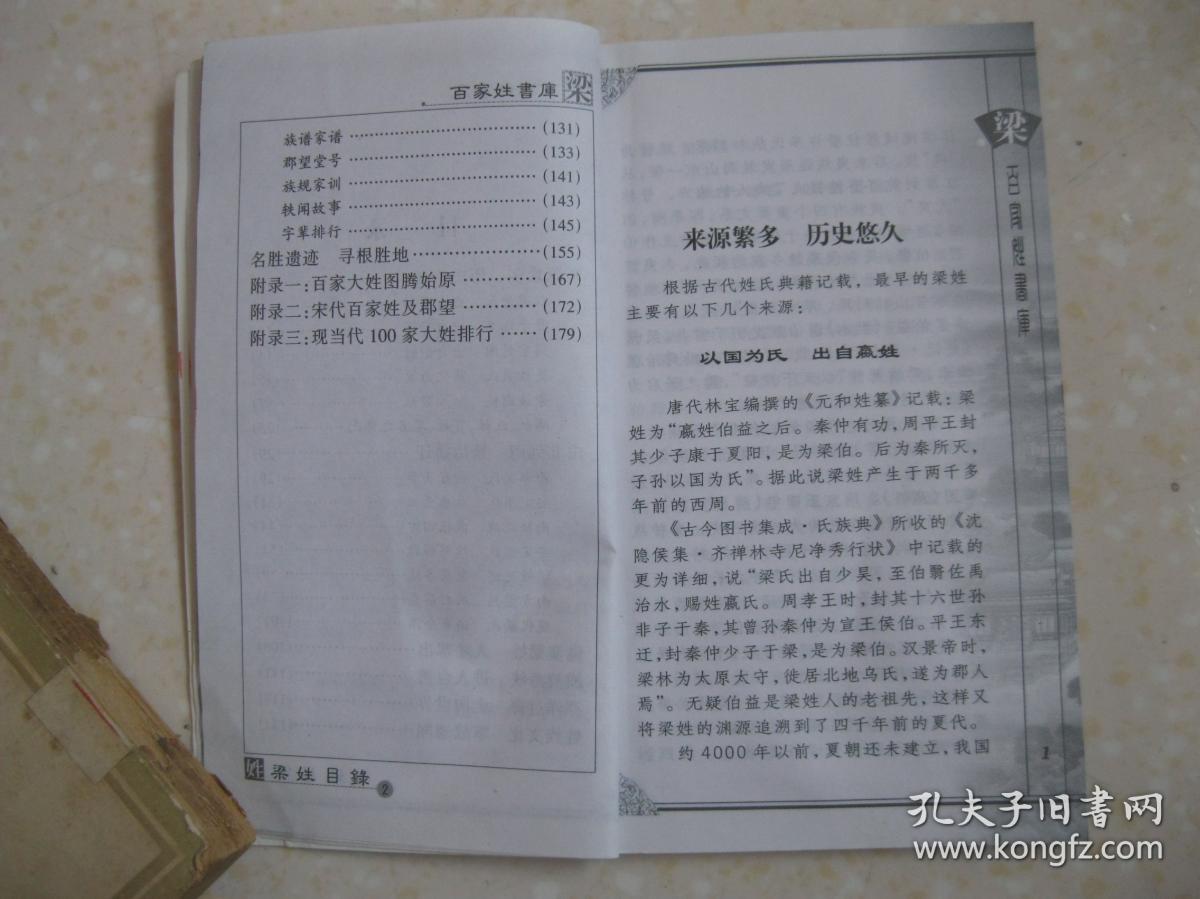 百家姓書庫 梁
族谱家谱 ································ (131)
郡望堂号 ································ (133)
族规家训 ································ (141)
轶闻故事 ································ (143)
字辈排行 ································ (145)
名胜遗迹 寻根胜地 ······················ (155)
附录一:百家大姓图腾始原 ············ (167)
附录二:宋代百家姓及郡望 ············ (172)
附录三:现当代 100 家大姓排行 ······ (179)
姓 梁姓目錄 2
梁
百家姓書庫
来源繁多 历史悠久
根据古代姓氏典籍记载，最早的梁姓
主要有以下几个来源：
以国为氏 出自嬴姓
唐代林宝编撰的《元和姓纂》记载：梁
姓为“嬴姓伯益之后。秦仲有功，周平王封
其少子康于夏阳，是为梁伯。后为秦所灭，
子孙以国为氏”。据此说梁姓产生于两千多
年前的西周。
《古今图书集成·氏族典》所收的《沈
隐侯集·齐禅林寺尼净秀行状》中记载的
更为详细，说“梁氏出自少昊，至伯翳佐禹
治水，赐姓嬴氏。周孝王时，封其十六世孙
非子于秦，其曾孙秦仲为宣王侯伯。平王东
迁，封秦仲少子于梁，是为梁伯。汉景帝时，
梁林为太原太守，徙居北地乌氏，遂为郡人
焉”。无疑伯益是梁姓人的老祖先，这样又
将梁姓的渊源追溯到了四千年前的夏代。
约 4000 年以前，夏朝还未建立，我国
1
孔夫子旧书网
www.kongfz.com